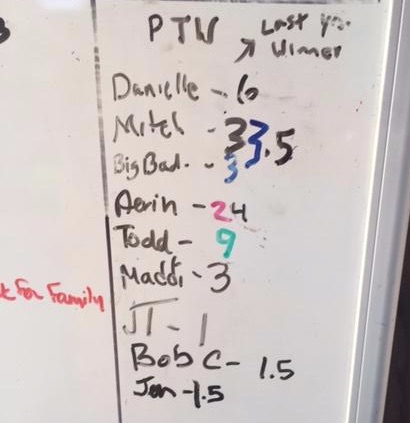 PTW Last yr.
↗ Winner
Danielle - 6
Mitch - 33.5
Big Bad. - 3
Aerin - 24
Todd - 9
Maddi - 3
For Family
JT - 1
Bob C - 1.5
Jon - 1.5